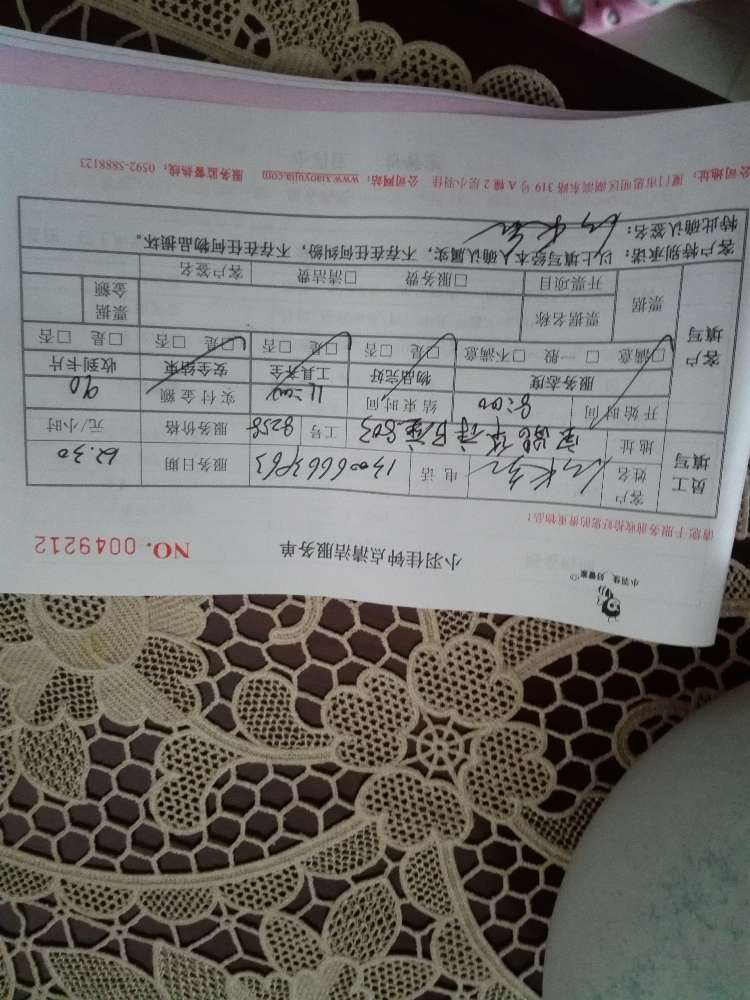 小羽佳 好管家
小羽佳钟点清洁服务单 NO. 0049212
请您于服务前收拾好您的贵重物品！
员工填写 客户姓名 电话 服务日期 12.30
地址 B座803 工号 8258 服务价格 元/小时
开始时间 8:00 结束时间 11:00 实付金额 90
客户填写 服务态度 物品完好 工具齐全 安全结束 收到卡片
□满意 □一般 □不满意 □是 □否 □是 □否 □是 □否 □是 □否
票据 票据名称 票据金额
开票项目 □服务费 □清洁费 客户签名
客户特别承诺：以上填写经本人确认属实，不存在任何纠纷，不存在任何物品损坏。
特此确认签名：
公司地址：厦门市思明区湖滨东路 319 号 A 幢 2 层小羽佳 公司网站：www.xiaoyujia.com 服务监督热线：0592-5888123